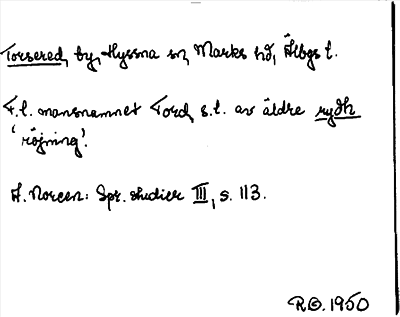 Torsered, by, Hyssna sn, Marks hd, Älvbgs l.
F.l. mansnamnet Tord, s.l. av äldre rydh
'röjning'.
A. Noreen: Spr. studier III, s. 113.
RG. 1950